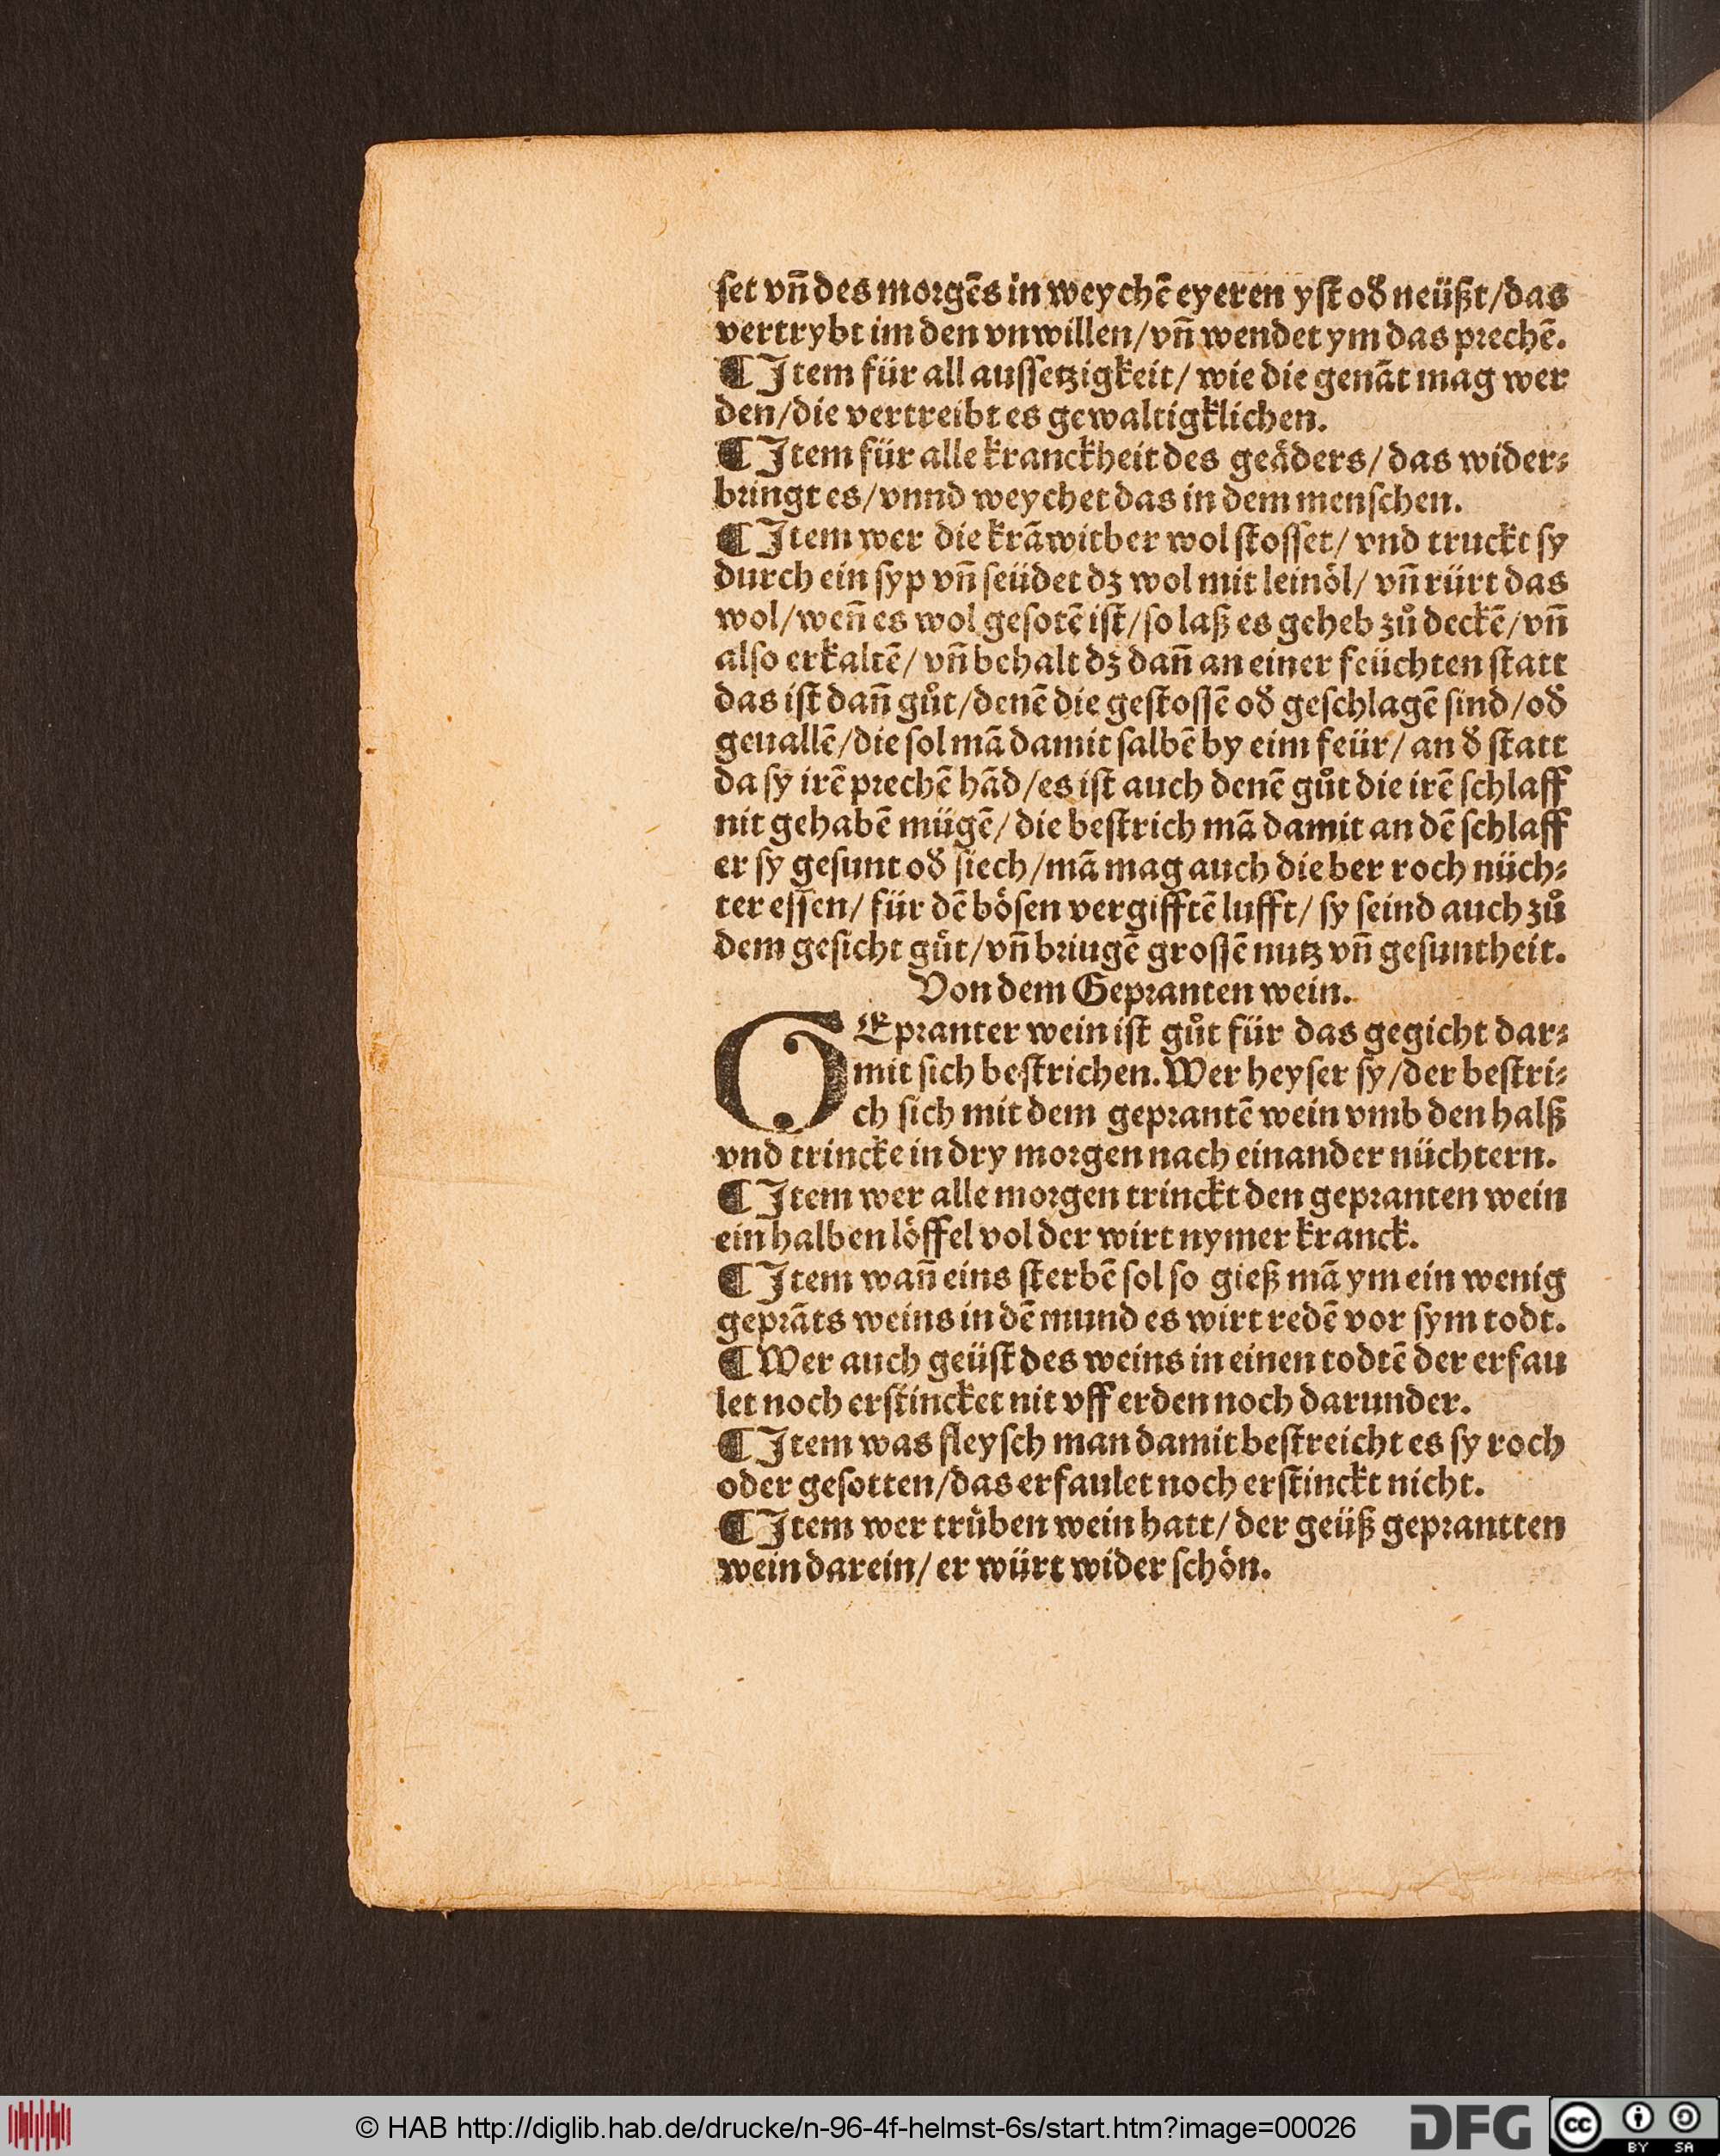 ſet vñ des morgẽs in weychẽ eyeren yſt oð neüßt/das
vertrybt im den vnwillen/vñ wendet ym das prechẽ.
¶ Item für all auſſetzigkeit/ wie die genãt mag wer
den/die vertreibt es gewaltigklichen.
¶ Item für alle kranckheit des geäders/ das wider⸗
bringt es/vnnd weychet das in dem menſchen.
¶ Item wer die krãwitber wol ſtoſſet/ vnd truckt ſy
durch ein ſyp vñ ſeüdet dʒ wol mit leinöl/ vñ rürt das
wol/weñ es wol geſotẽ iſt/ſo laß es geheb zů deckẽ/vñ
alſo erkaltẽ/ vñ behalt dʒ dañ an einer feüchten ſtatt
das iſt dañ gůt/denẽ die geſtoſſẽ oð geſchlagẽ ſind/oð
geuallẽ/die ſol mã damit ſalbẽ by eim feür/ an ð ſtatt
da ſy irẽ prechẽ hãd/es iſt auch denẽ gůt die irẽ ſchlaff
nit gehabẽ mügẽ/ die beſtrich mã damit an dẽ ſchlaff
er ſy geſunt oð ſiech/mã mag auch die ber roch nüch⸗
ter eſſen/ für dẽ böſen vergifftẽ lufft/ ſy ſeind auch zů
dem geſicht gůt/vñ briugẽ groſſẽ nutz vñ geſuntheit.
Von dem Gepranten wein.
GEpranter wein iſt gůt für das gegicht dar⸗
mit ſich beſtrichen. Wer heyſer ſy/der beſtri⸗
ch ſich mit dem geprantẽ wein vmb den halß
vnd trincke in dry morgen nach einander nüchtern.
¶ Item wer alle morgen trinckt den gepranten wein
ein halben löffel vol der wirt nymer kranck.
¶ Item wañ eins ſterbẽ ſol ſo gieß mã ym ein wenig
geprãts weins in dẽ mund es wirt redẽ vor ſym todt.
¶ Wer auch geüſt des weins in einen todtẽ der erfau
let noch erſtincket nit vff erden noch darunder.
¶ Item was fleyſch man damit beſtreicht es ſy roch
oder geſotten/das erfaulet noch erſtinckt nicht.
¶ Item wer trůben wein hatt/ der geüß geprantten
wein darein/ er würt wider ſchön.
© HAB http://diglib.hab.de/drucke/n-96-4f-helmst-6s/start.htm?image=00026
DFG
cc
BY SA